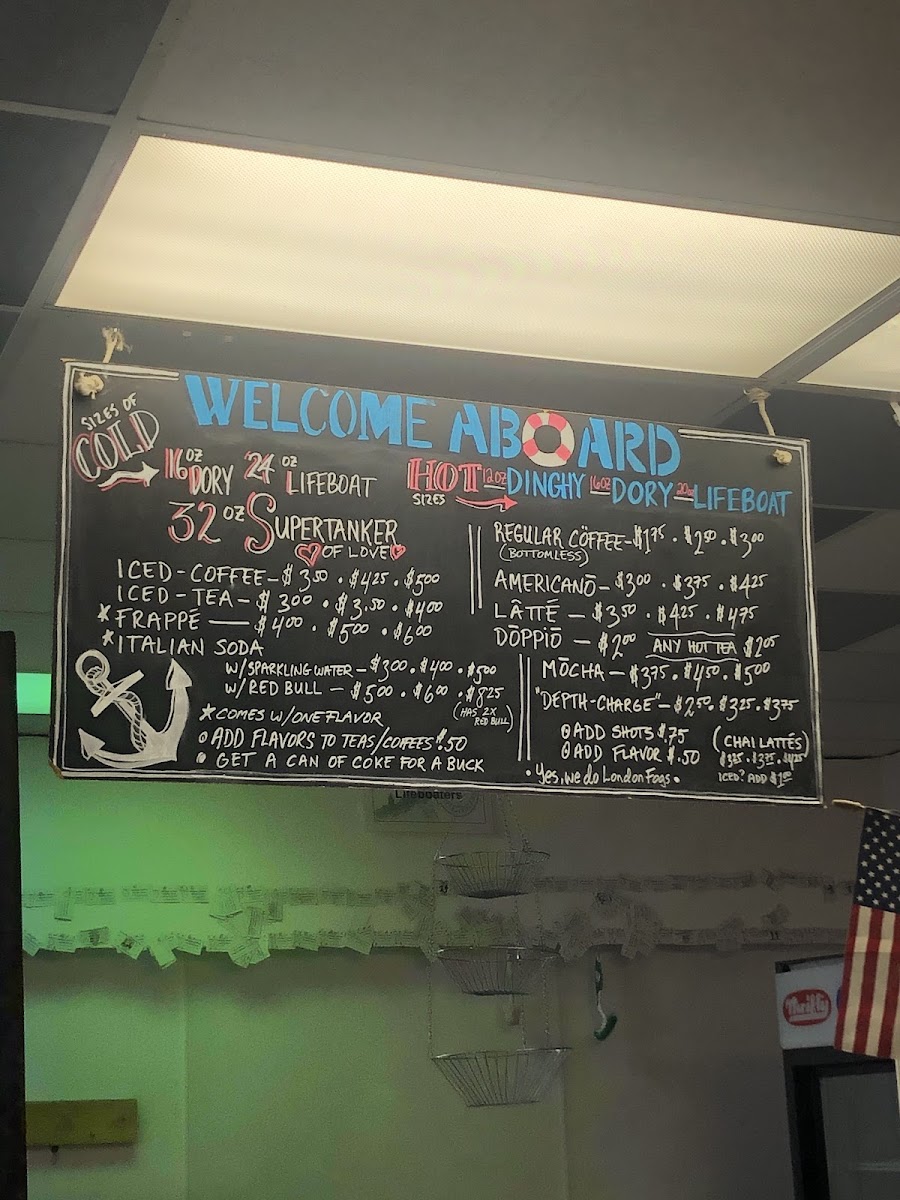 WELCOME ABOARD
SIZES OF
COLD
16 OZ DORY 24 OZ LIFEBOAT
32 OZ SUPERTANKER
OF LOVE
ICED-COFFEE-$3.50 . $4.25 . $5.00
ICED-TEA-$3.00 . $3.50 . $4.00
*FRAPPÉ — $4.00 . $5.00 . $6.00
*ITALIAN SODA
W/SPARKLING WATER-$3.00 . $4.00 . $5.00
W/ RED BULL - $5.00 . $6.00 . $8.25
(HAS 2X
RED BULL)
*COMES W/ONE FLAVOR
ADD FLAVORS TO TEAS/COFFEES $.50
• GET A CAN OF COKE FOR A BUCK
HOT 12OZ DINGHY 16OZ DORY 20OZ LIFEBOAT
SIZES
REGULAR CÖFFEE-$1.75 . $2.50 . $3.00
(BOTTOMLESS)
AMERICANŌ-$3.00 . $3.75 . $4.25
LĀTTĒ - $3.50 . $4.25 . $4.75
DŌPPIŌ - $2.00 ANY HOT TEA $2.05
MŌCHA-$3.75 . $4.50 . $5.00
"DEPTH-CHARGE"-$2.50 . $3.25 . $3.75
ADD SHOTS $.75
ADD FLAVOR $.50
(CHAI LATTÉS)
$3.25 . $3.75 . $4.25
ICED? ADD $1.00
• Yes, we do London Fogs •
Lifeboaters
Thrifty